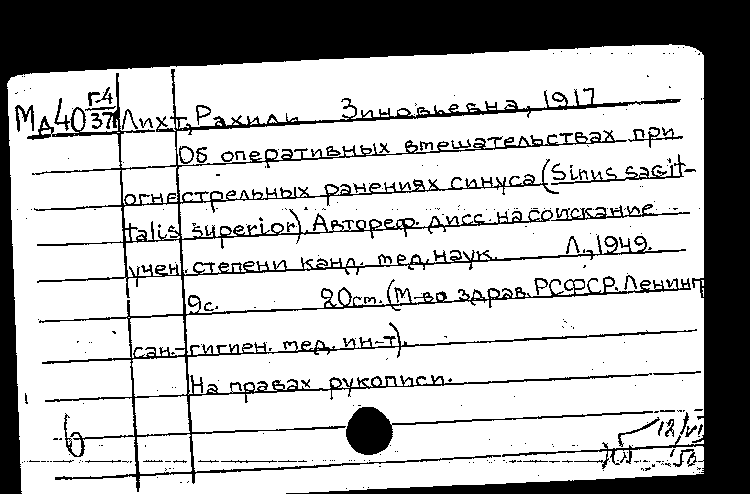 Мд40 Г-4/37 Лихт, Рахиль Зиновьевна, 1917
Об оперативных вмешательствах при
огнестрельных ранениях синуса (Sinus sagit-
talis superior). Автореф. дисс. на соискание
учен. степени канд. мед. наук. Л., 1949.
9с. 20см. (М-во здрав. РСФСР. Ленингр
сан.-гигиен. мед. ин-т).
На правах рукописи.
б
12/VI
50